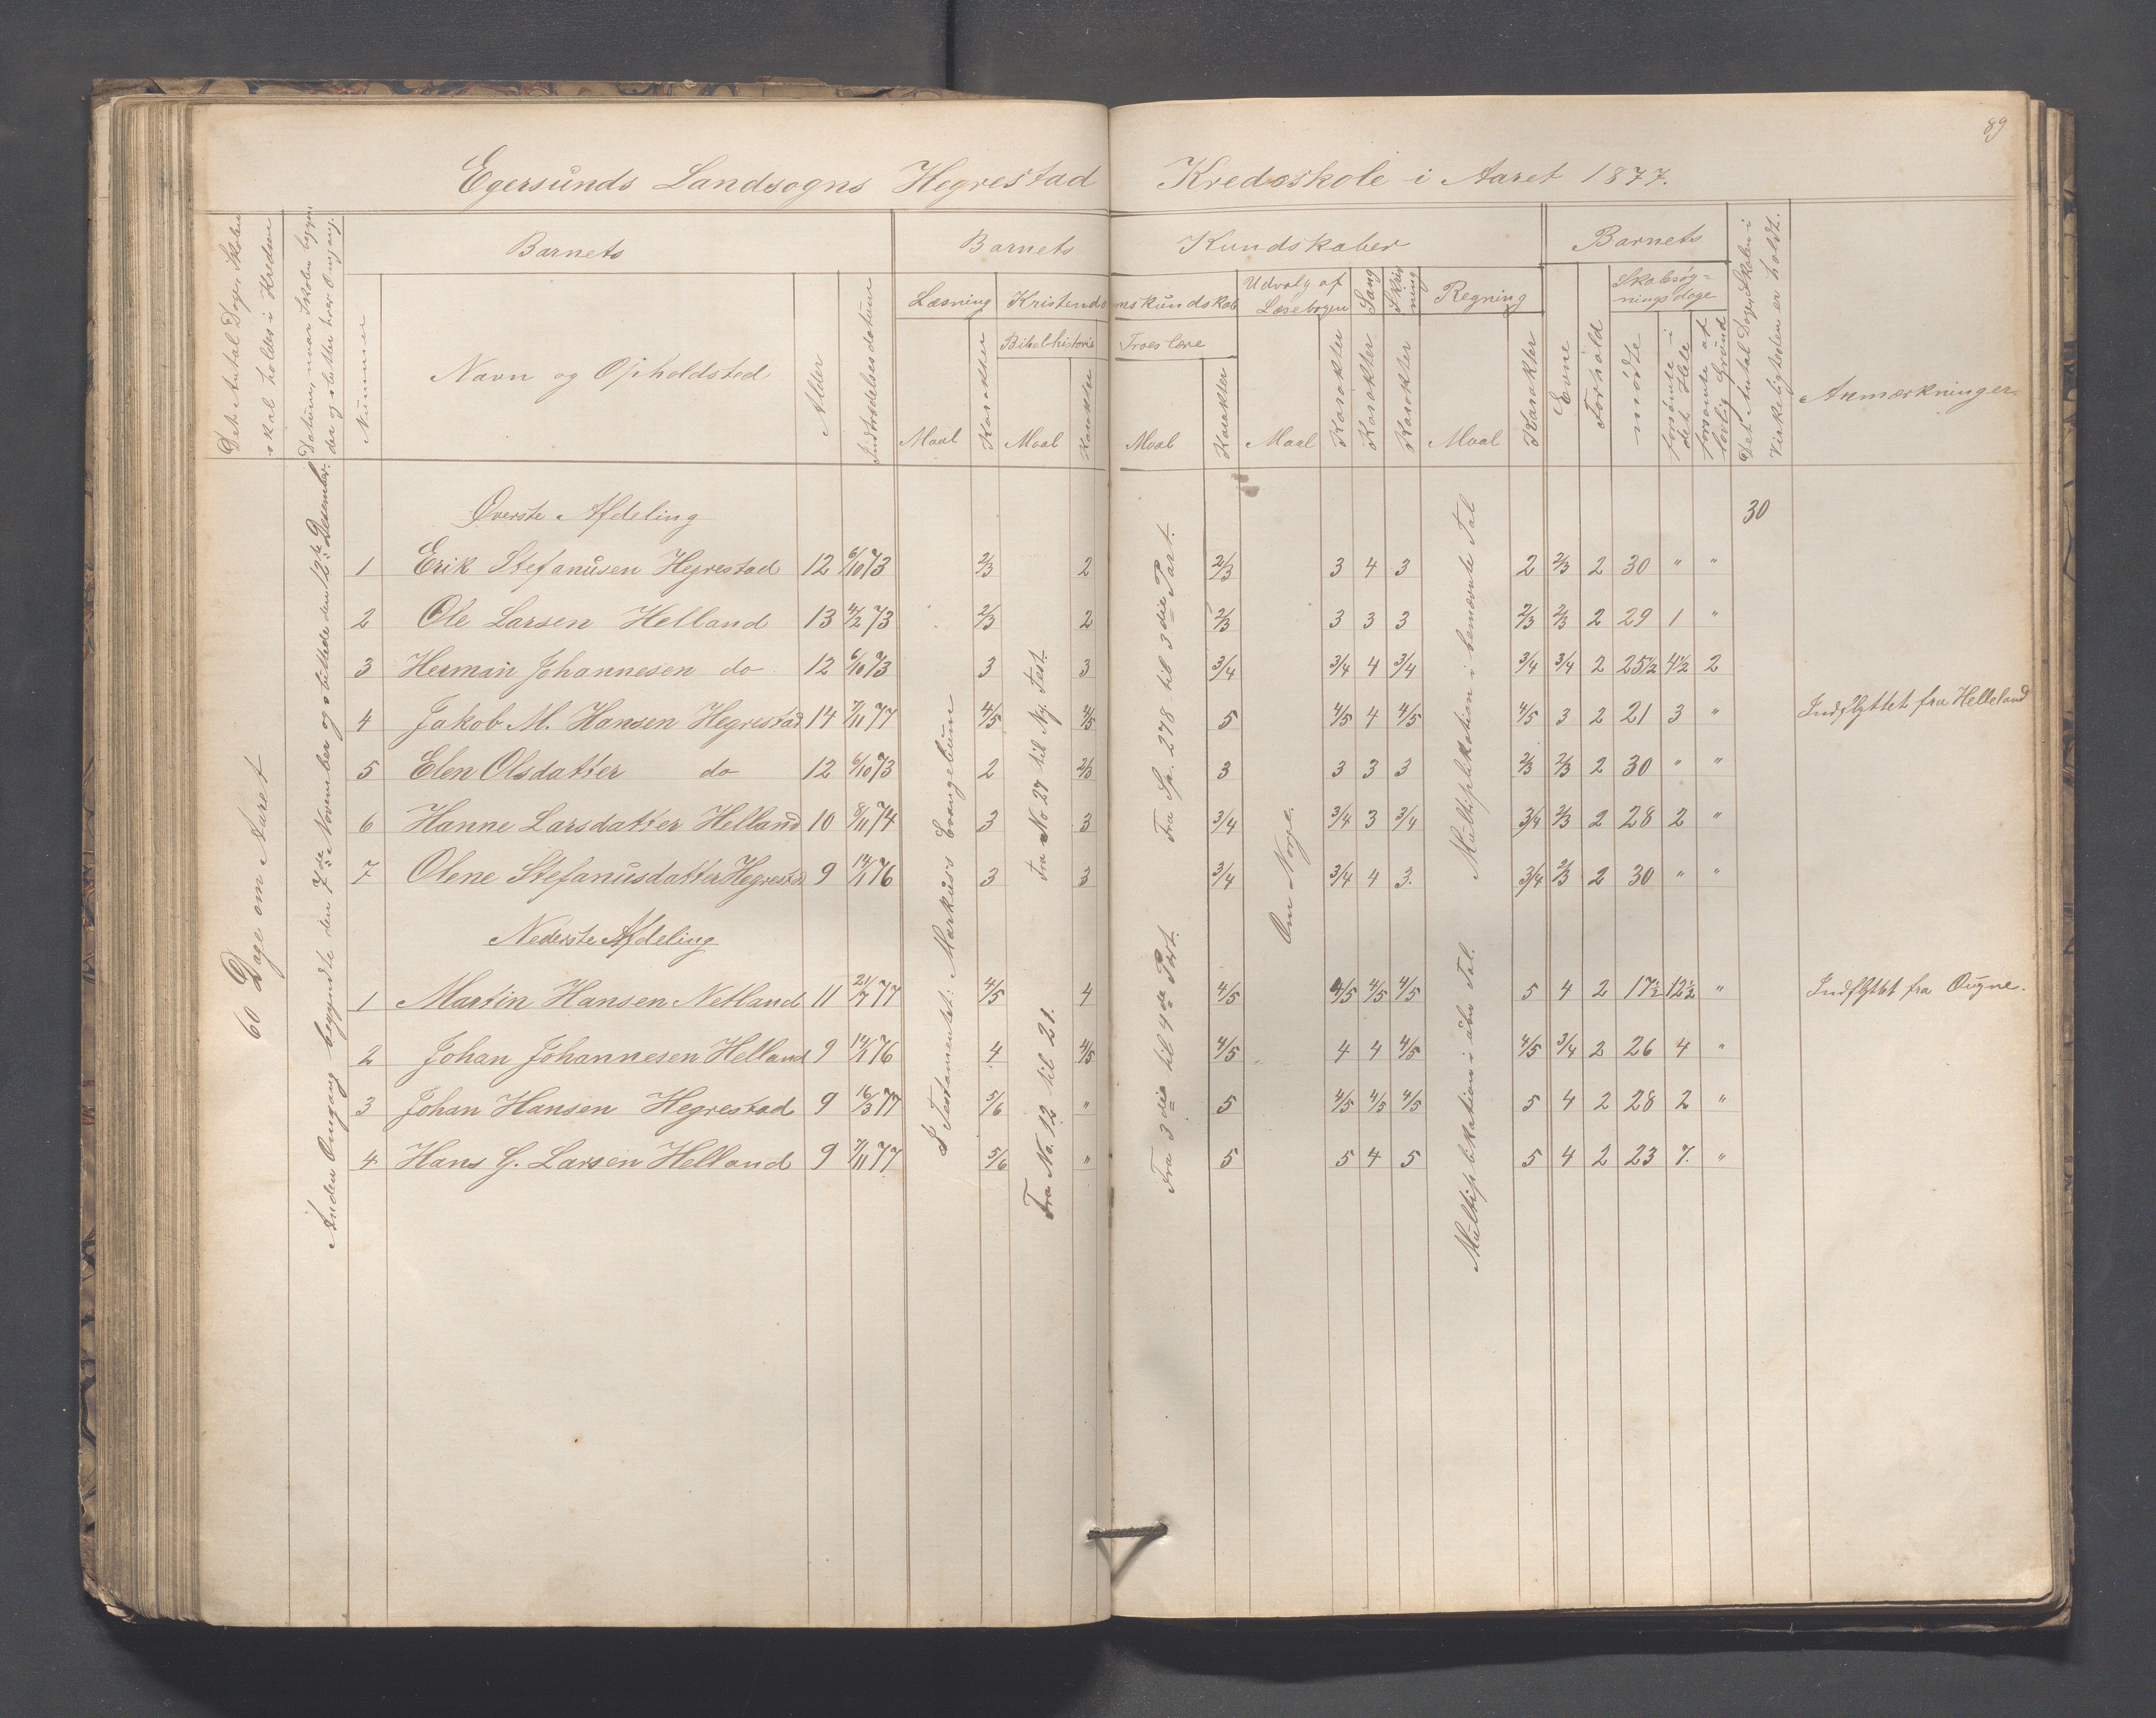 89
Egersunds Landsogns Hegrestad Kredsskole i Aaret 1877.
Det Antal Dage, Skolen skal holdes i Kredsen
Datum, naar Skolen begynder og slutter hver Omgang.
Barnets
Nummer
Navn og Opholdsted
Alder
Indtrædelsesdatum
Barnets Kundskaber
Læsning
Maal
Karakter
Kristendomskundskab
Bibelhistorie
Maal
Karakter
Troeslære
Maal
Karakter
Udvalg af Læsebogen
Maal
Karakter
Sang
Karakter
Skrivning
Karakter
Regning
Maal
Karakter
Barnets
Evne
Forhold
Skolesøgningsdage
mødte
forsømte i det Hele
forsømte af lovlig Grund
Det Antal Dage, Skolen i Virkeligheden er holdt.
Anmærkninger
60 Dage om Aaret
Anden Omgang begyndte den 7de November og sluttede den 12te Desember.
I Testamentet: Markus's Evangelium
Fra No 27 til Ny. Test.
Fra No. 12 til 21.
Fra Sp. 278 til 3die Part.
Fra 3die til 4de Part.
Om Norge.
Multiplikation i benævnte Tal
Multiplikation i ubn Tal.
30
Øverste Afdeling
1 Erik Stefanusen Hegrestad 12 6/10 73 2/3 2 2/3 3 4 3 2 2/3 2 30 " "
2 Ole Larsen Helland 13 4/2 73 2/3 2 2/3 3 3 3 2/3 2/3 2 29 1 "
3 Herman Johannesen do 12 6/10 73 3 3 3/4 3/4 4 3/4 3/4 3/4 2 25 1/2 4 1/2 2
4 Jakob M. Hansen Hegrestad 14 7/11 77 4/5 4/5 5 4/5 4 4/5 4/5 3 2 21 3 " Indflyttet fra Helleland
5 Elen Olsdatter do 12 6/10 73 2 2/3 3 3 3 3 2/3 2/3 2 30 " "
6 Hanne Larsdatter Helland 10 8/11 74 3 3 3/4 3/4 3 3/4 3/4 2/3 2 28 2 "
7 Olene Stefanusdatter Hegrestad 9 14/1 76 3 3 3/4 3/4 4 3. 3/4 2/3 2 30 " "
Nederste Afdeling
1 Martin Hansen Netland 11 21/7 77 4/5 4 4/5 4/5 4/5 4/5 5 4 2 17 1/2 12 1/2 " Indflyttet fra Ougne.
2 Johan Johannesen Helland 9 14/1 76 4 4/5 4/5 4 4 4/5 4/5 3/4 2 26 4 "
3 Johan Hansen Hegrestad 9 16/3 77 5/6 " 5 4/5 4/5 4/5 5 4 2 28 2 "
4 Hans G. Larsen Helland 9 7/11 77 5/6 " 5 5 4 5 5 4 2 23 7. "